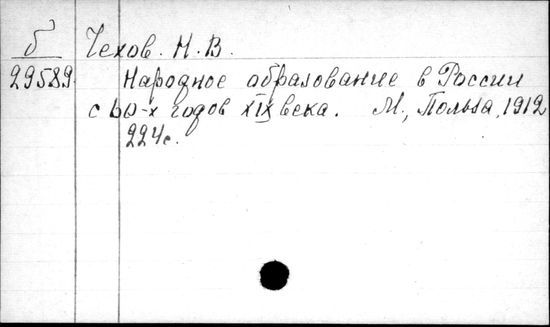 б Чехов. Н. В.
29589 Народное образование в России
с 60-х годов XIX века. М., Польза, 1912
224с.